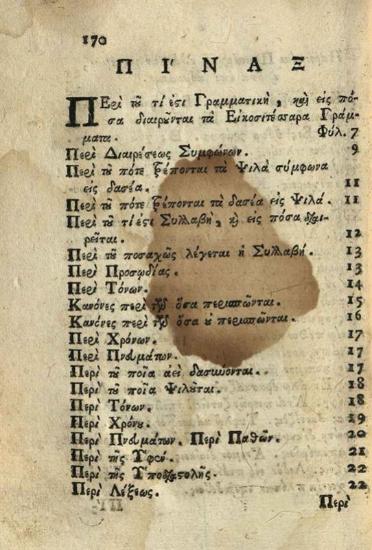 170
ΠΙ'ΝΑΞ
ΠΕρὶ τοῦ τί ἐστι Γραμματικὴ, καὶ εἰς πό-
σα διαιροῦνται τὰ Εἰκοσιτέσσαρα Γράμ-
ματα. Φύλ. 7
Περὶ Διαιρέσεως Συμφώνων. 9
Περὶ τοῦ πότε τρέπονται τὰ Ψιλὰ σύμφωνα
εἰς δασέα. 11
Περὶ τοῦ πότε τρέπονται τὰ δασέα εἰς Ψιλά. 11
Περὶ τοῦ τί ἐστι Συλλαβὴ, καὶ εἰς πόσα διαι-
ρεῖται. 12
Περὶ τοῦ ποσαχῶς λέγεται ἡ Συλλαβή. 13
Περὶ Προσῳδίας. 13
Περὶ Τόνων. 14
Κανόνες περὶ τῶν ὅσα περισπῶνται. 15
Κανόνες περὶ τῶν ὅσα οὐ περισπῶνται. 16
Περὶ Χρόνων. 17
Περὶ Πνευμάτων. 17
Περὶ τοῦ ποῖα ἀεὶ δασύνονται. 17
Περὶ τοῦ ποῖα Ψιλοῦται. 18
Περὶ Τόνων. 18
Περὶ Χρόνου. 19
Περὶ Πνευμάτων. Περὶ Παθῶν. 20
Περὶ τῆς Ὑφέν. 21
Περὶ τῆς Ὑποδιαστολῆς. 22
Περὶ Λέξεως. 22
Περὶ